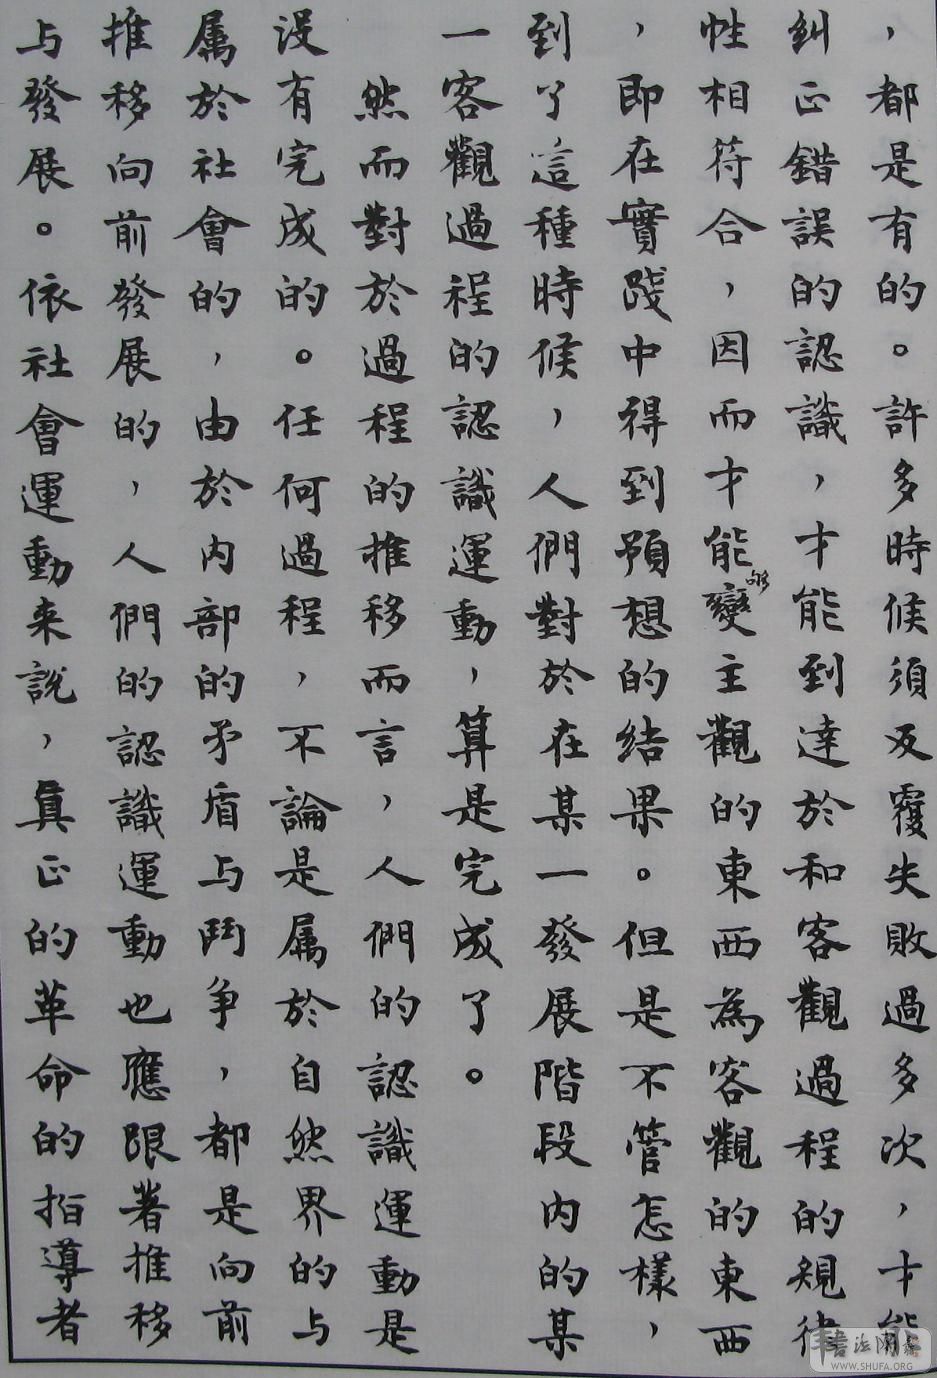 ，都是有的。許多時候須反覆失敗過多次，才能
糾正錯誤的認識，才能到達於和客觀過程的規律
性相符合，因而才能夠變主觀的東西為客觀的東西
，即在實踐中得到預想的結果。但是不管怎樣，
到了這種時候，人們對於在某一發展階段內的某
一客觀過程的認識運動，算是完成了。
然而對於過程的推移而言，人們的認識運動是
没有完成的。任何過程，不論是属於自然界的与
属於社會的，由於内部的矛盾与鬥争，都是向前
推移向前發展的，人們的認識運動也應跟著推移
与發展。依社會運動来說，真正的革命的指導者
書法網
WWW.SHUFA.ORG